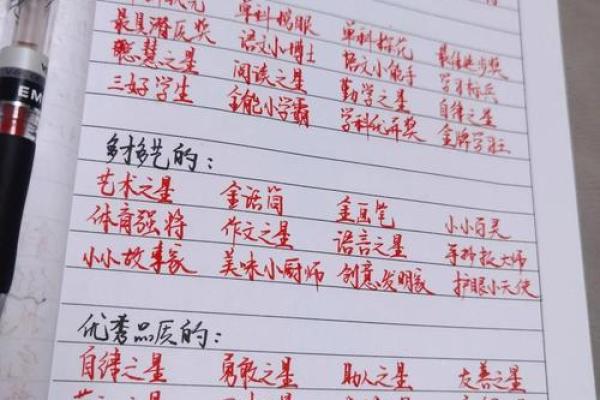 单科榜眼 单科探花
最具潜质奖 语文小博士 语文小能手 最佳进步奖
智慧之星 阅读之星 勤学之星 学习标兵
三好学生 全能小学霸 学科优异奖 自律之星
金牌学习王
多才多艺的:
艺术之星 金话筒 金画笔 小小百灵
体育强将 作文之星 语言之星 手抄报大师
小小故事家 美味小厨师 创意发明家 护眼小天使
优秀品质的:
自律之星 勇敢之星 助人之星 友善之星
EM